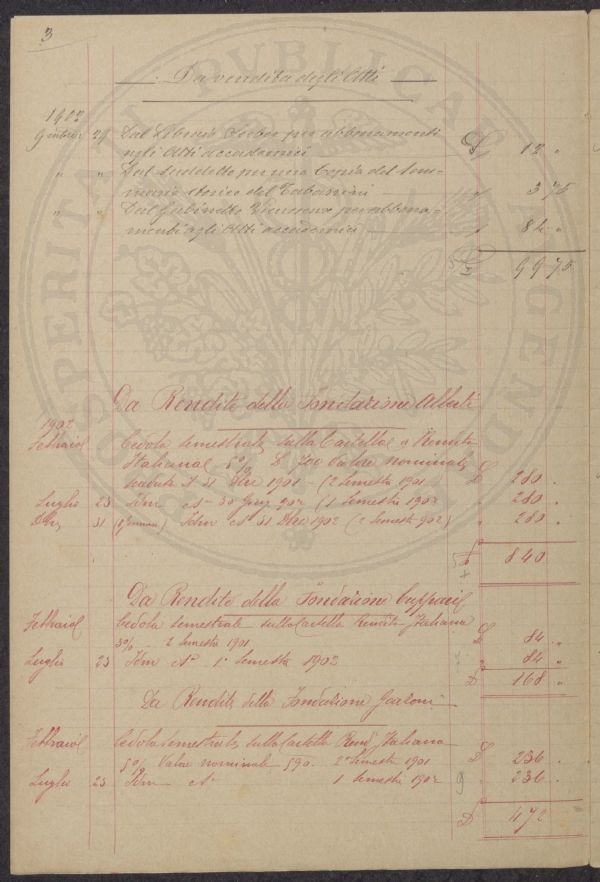 3
Da vendita degli Atti
1902
29 Dal Libraio per abbonamenti
agli Atti accademici £ 12 "
" " Dal suddetto per una Copia del Som-
mario storico del Tabarrini " 3 75
" " Dal Gabinetto Vieusseux per abbona-
menti agli Atti accademici " 84 "
£ 99 75
Da Rendite della Fondazione Alberti
1902
Febbraio Cedola semestrale sulla Cartella Rendita
Italiana 5% £ 700 Valore nominale
scaduta il 31 Dic 1901 - (2 Semestre 1901 £ 280 "
Luglio 23 Idm 30 902 (1 Semestre 1902 " 280 "
31 Idm 31 Dbre 1902 (2 Semestre 902) " 280 "
£ 840
Da Rendite della Fondazione Cuppari
Febbraio Cedola semestrale sulla Cartella Rendita Italiana
5% - 2 Semestre 1901 £ 84 "
Luglio 23 Idm 1° Semestre 1902 84 "
£ 168 "
Da Rendite della Fondazione Gazzoni
Febbraio Cedola semestrale sulla Cartella Rend Italiana
5% Valore nominale 590. 2° Semestre 1901 £ 236 "
Luglio 23 Idm 1 Semestre 1902 236 "
£ 472